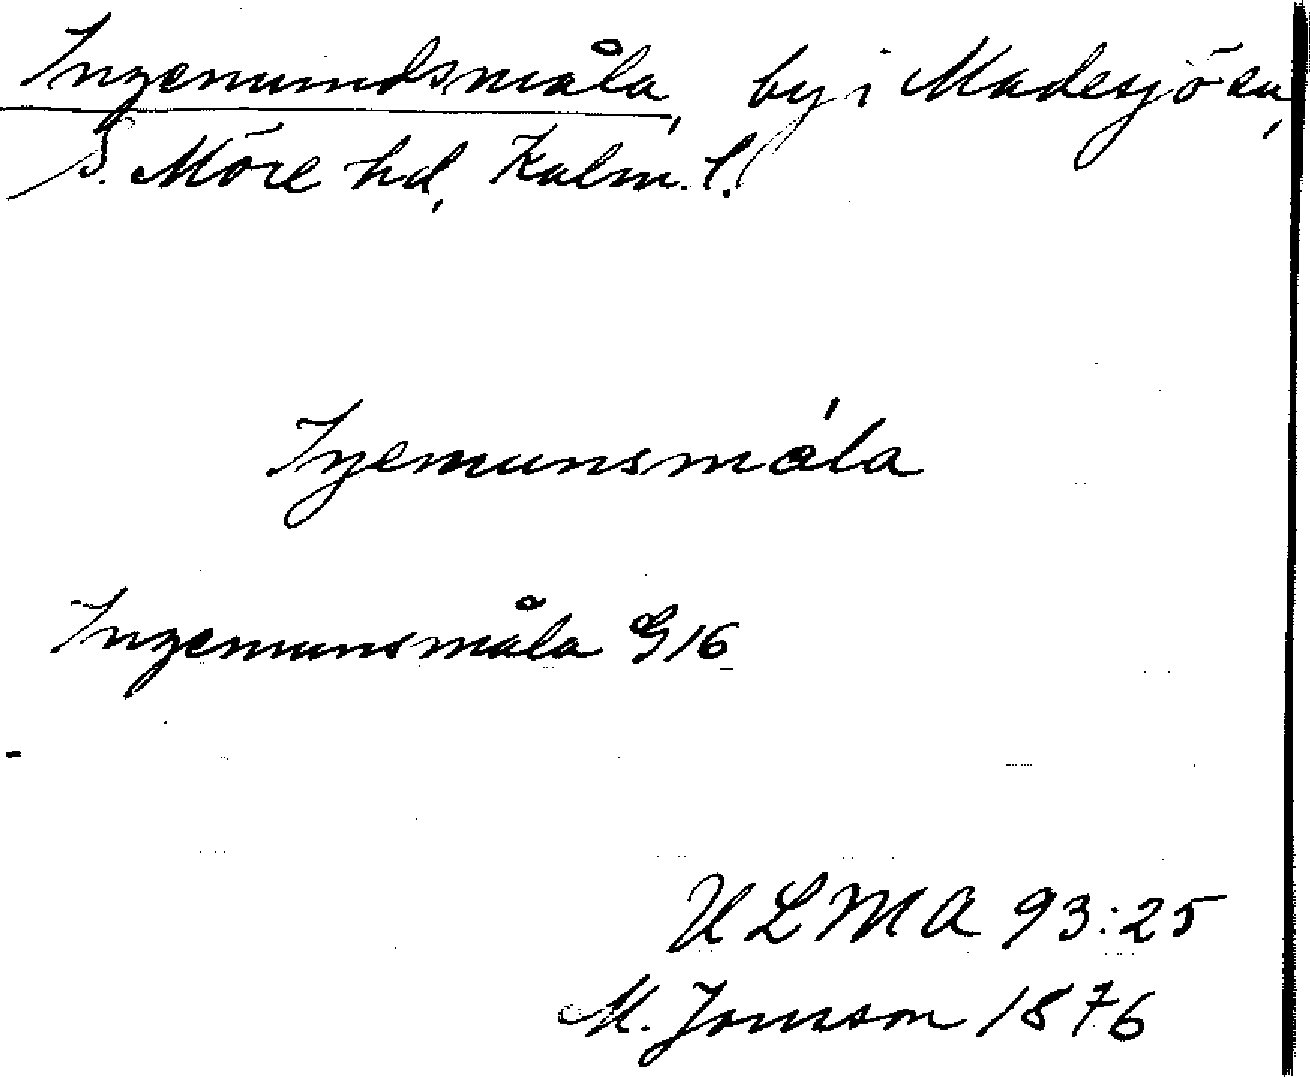 Ingemundsmåla, by i Madesjö sn,
S. Möre hd, Kalm. l.
Iyemunsmåla
Ingemunsmåla G16
ULMA 93:25
M. Jonsson 1876